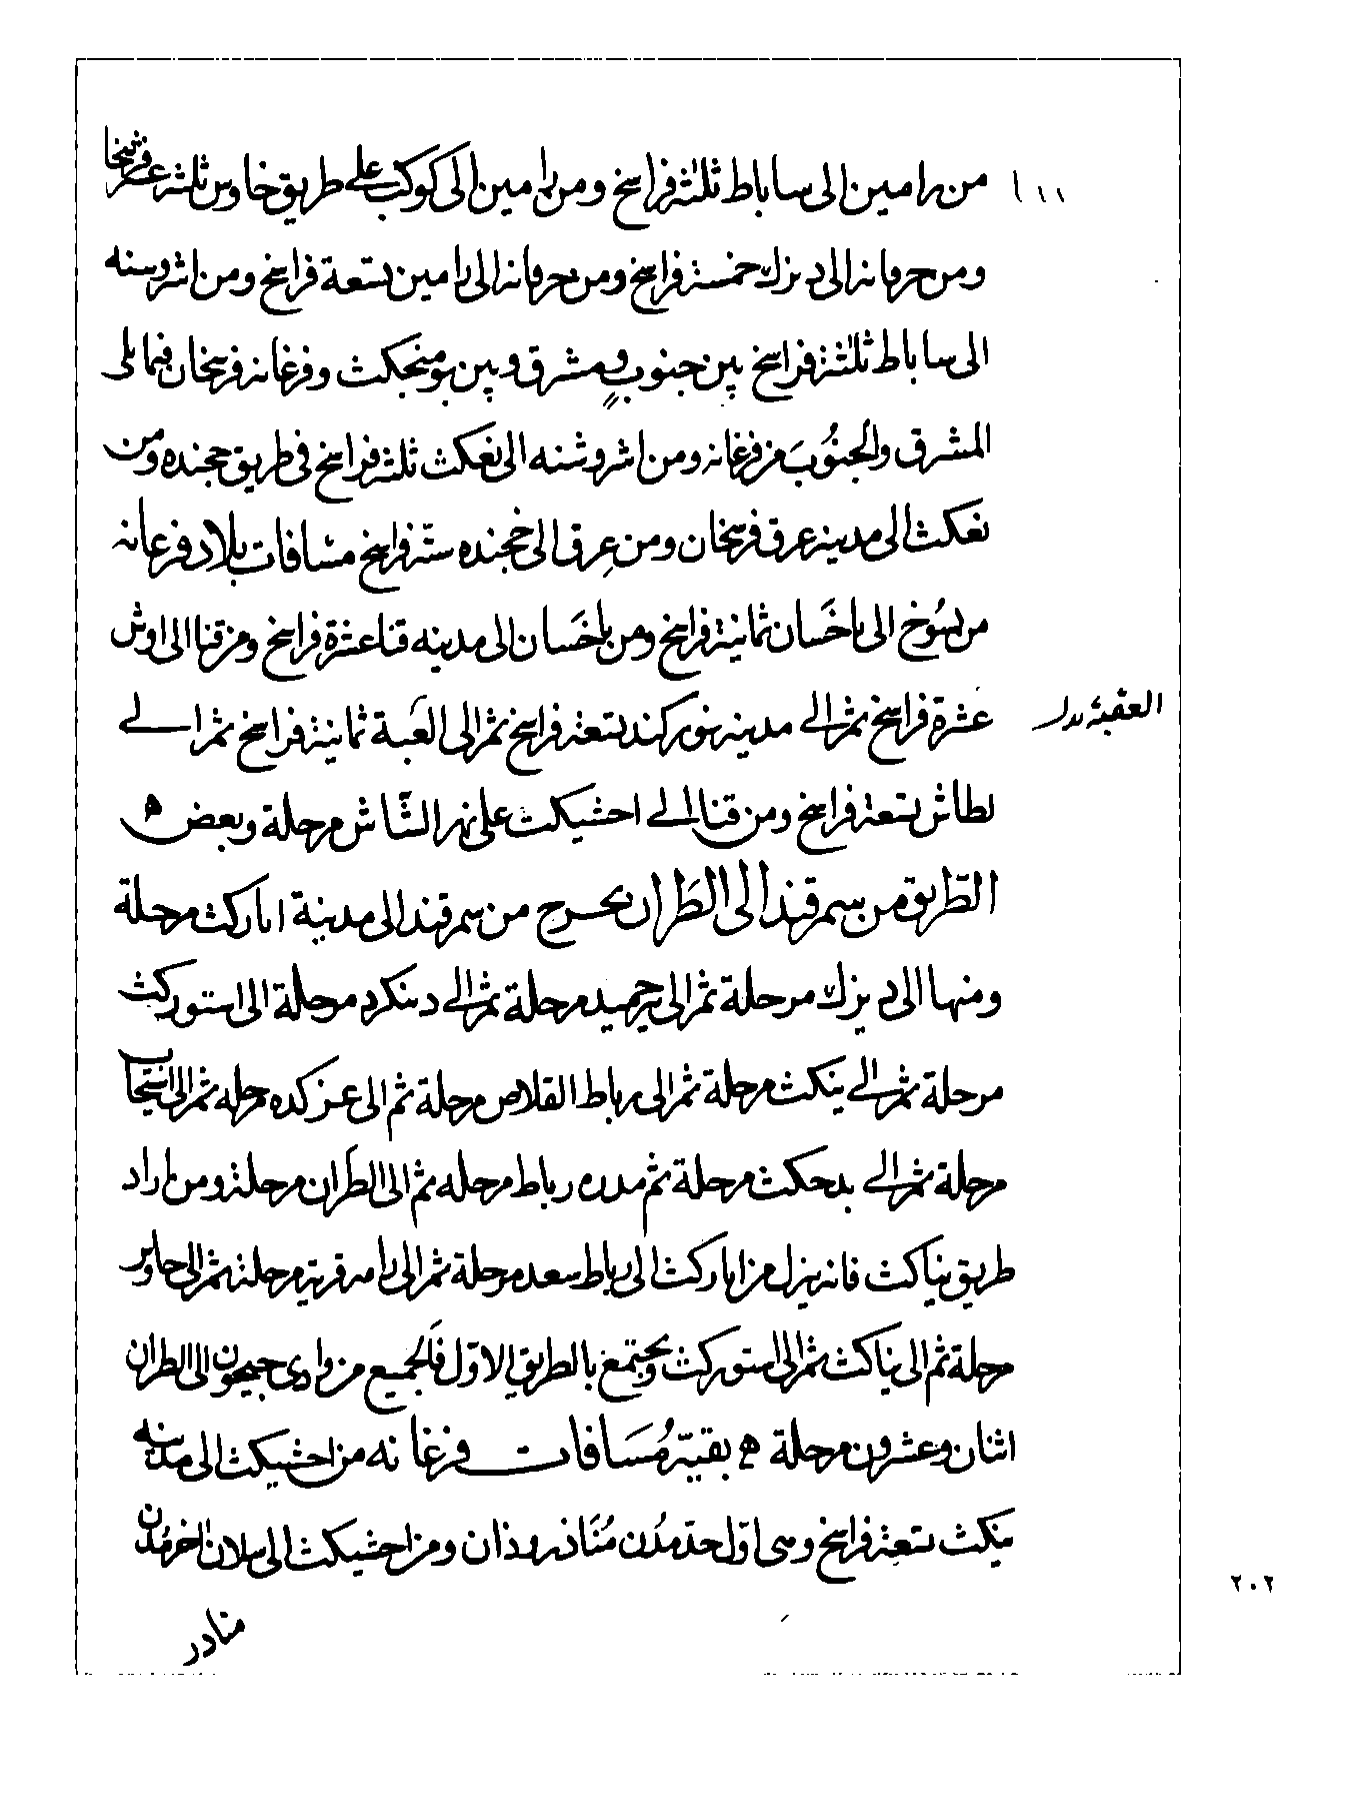 من رامين الى ساباط ثلثة فراسخ ومن رامين الى كوكب على طريق خاوس ثلثة عشر فرسخا
ومن حرمانه الى ديزك خمسة فراسخ ومن حرمانه الى رامين تسعة فراسخ ومن اشروسنه
الى ساباط ثلثة فراسخ بين جنوب ومشرق وبين بومنجكث وفرغانه فرسخان فيما يلى
المشرق والجنوب من فرغانه ومن اشروسنه الى نغكث ثلثة فراسخ فى طريق خجنده ومن
نغكث الى مدينة عرق فرسخان ومن عرق الى خجنده ستة فراسخ مسافات بلاد فرغانه
من سوخ الى باخسان ثمانية فراسخ ومن باخسان الى مدينه قنا عشرة فراسخ ومن قنا الى اوش
عشرة فراسخ ثم الى مدينه نوركند تسعة فراسخ ثم الى العبة ثمانية فراسخ ثم الى
العقبة بدل
لطاش تسعة فراسخ ومن قنا الى اخشيكث على نهر الشاش مرحلة وبعض ه
الطريق من سمرقند الى الطران يخرج من سمرقند الى مدينة اباركث مرحلة
ومنها الى ديزك مرحلة ثم الى بيرحميد مرحلة ثم الى دينكرد مرحلة الى استوركث
مرحلة ثم الى بنكث مرحلة ثم الى رباط القلاص مرحلة ثم الى عزكده مرحله ثم الى اسبيجاب
مرحلة ثم الى بدحكث مرحلة ثم مدره رباط مرحله ثم الى الطران مرحلة ومن اراد
طريق بناكث فانه ينزل من اباركث الى رباط سعد مرحلة ثم الى رامه قرية مرحلة ثم الى خاوس
مرحلة ثم الى بناكث ثم الى استوركث ويجتمع بالطريق الاول فالجميع من وادى جيحون الى الطران
اثنان وعشرون مرحلة ه بقية مسافات فرغانه من اخشيكث الى مدينه
بنكث تسعة فراسخ وهى اول حد مدن مناذروذان ومن اخشيكث الى سلان اخر مدن
مناذر
٢٠٢